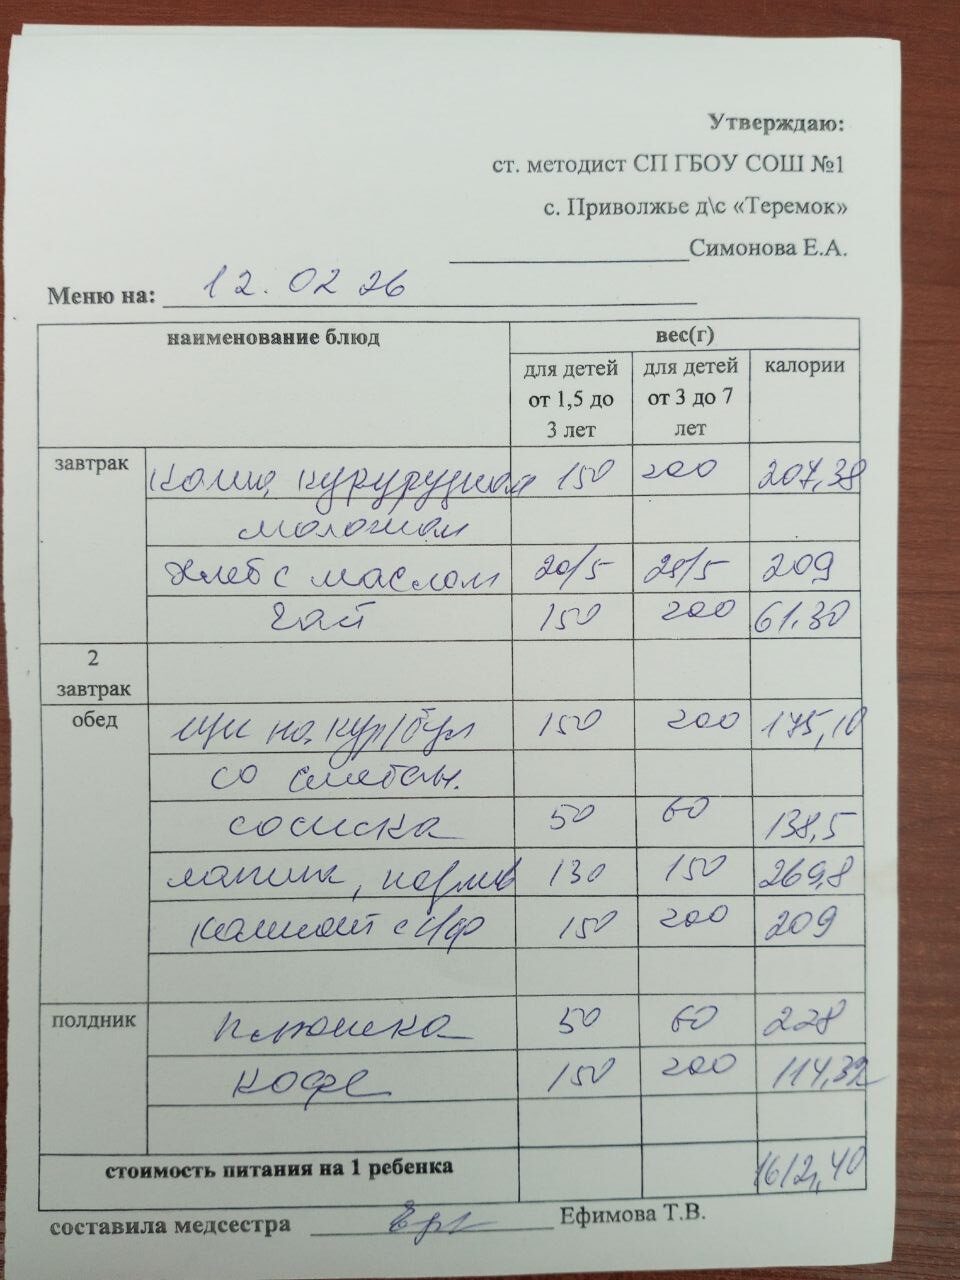 Утверждаю:
ст. методист СП ГБОУ СОШ №1
с. Приволжье д\с «Теремок»
Симонова Е.А.
Меню на: 12.02 26
наименование блюд вес(г)
для детей от 1,5 до 3 лет для детей от 3 до 7 лет калории
завтрак каша кукурузная 150 200 207,38
молочная
хлеб с маслом 20/5 25/5 209
чай 150 200 61.30
2 завтрак
обед щи на кур/бул 150 200 175,10
со сметан.
сосиска 50 60 138,5
150 269,8
130
компот с/ф 150 200 209
полдник плюшка 50 60 228
кофе 150 200 114,32
стоимость питания на 1 ребенка 1612,40
составила медсестра Ефимова Т.В.